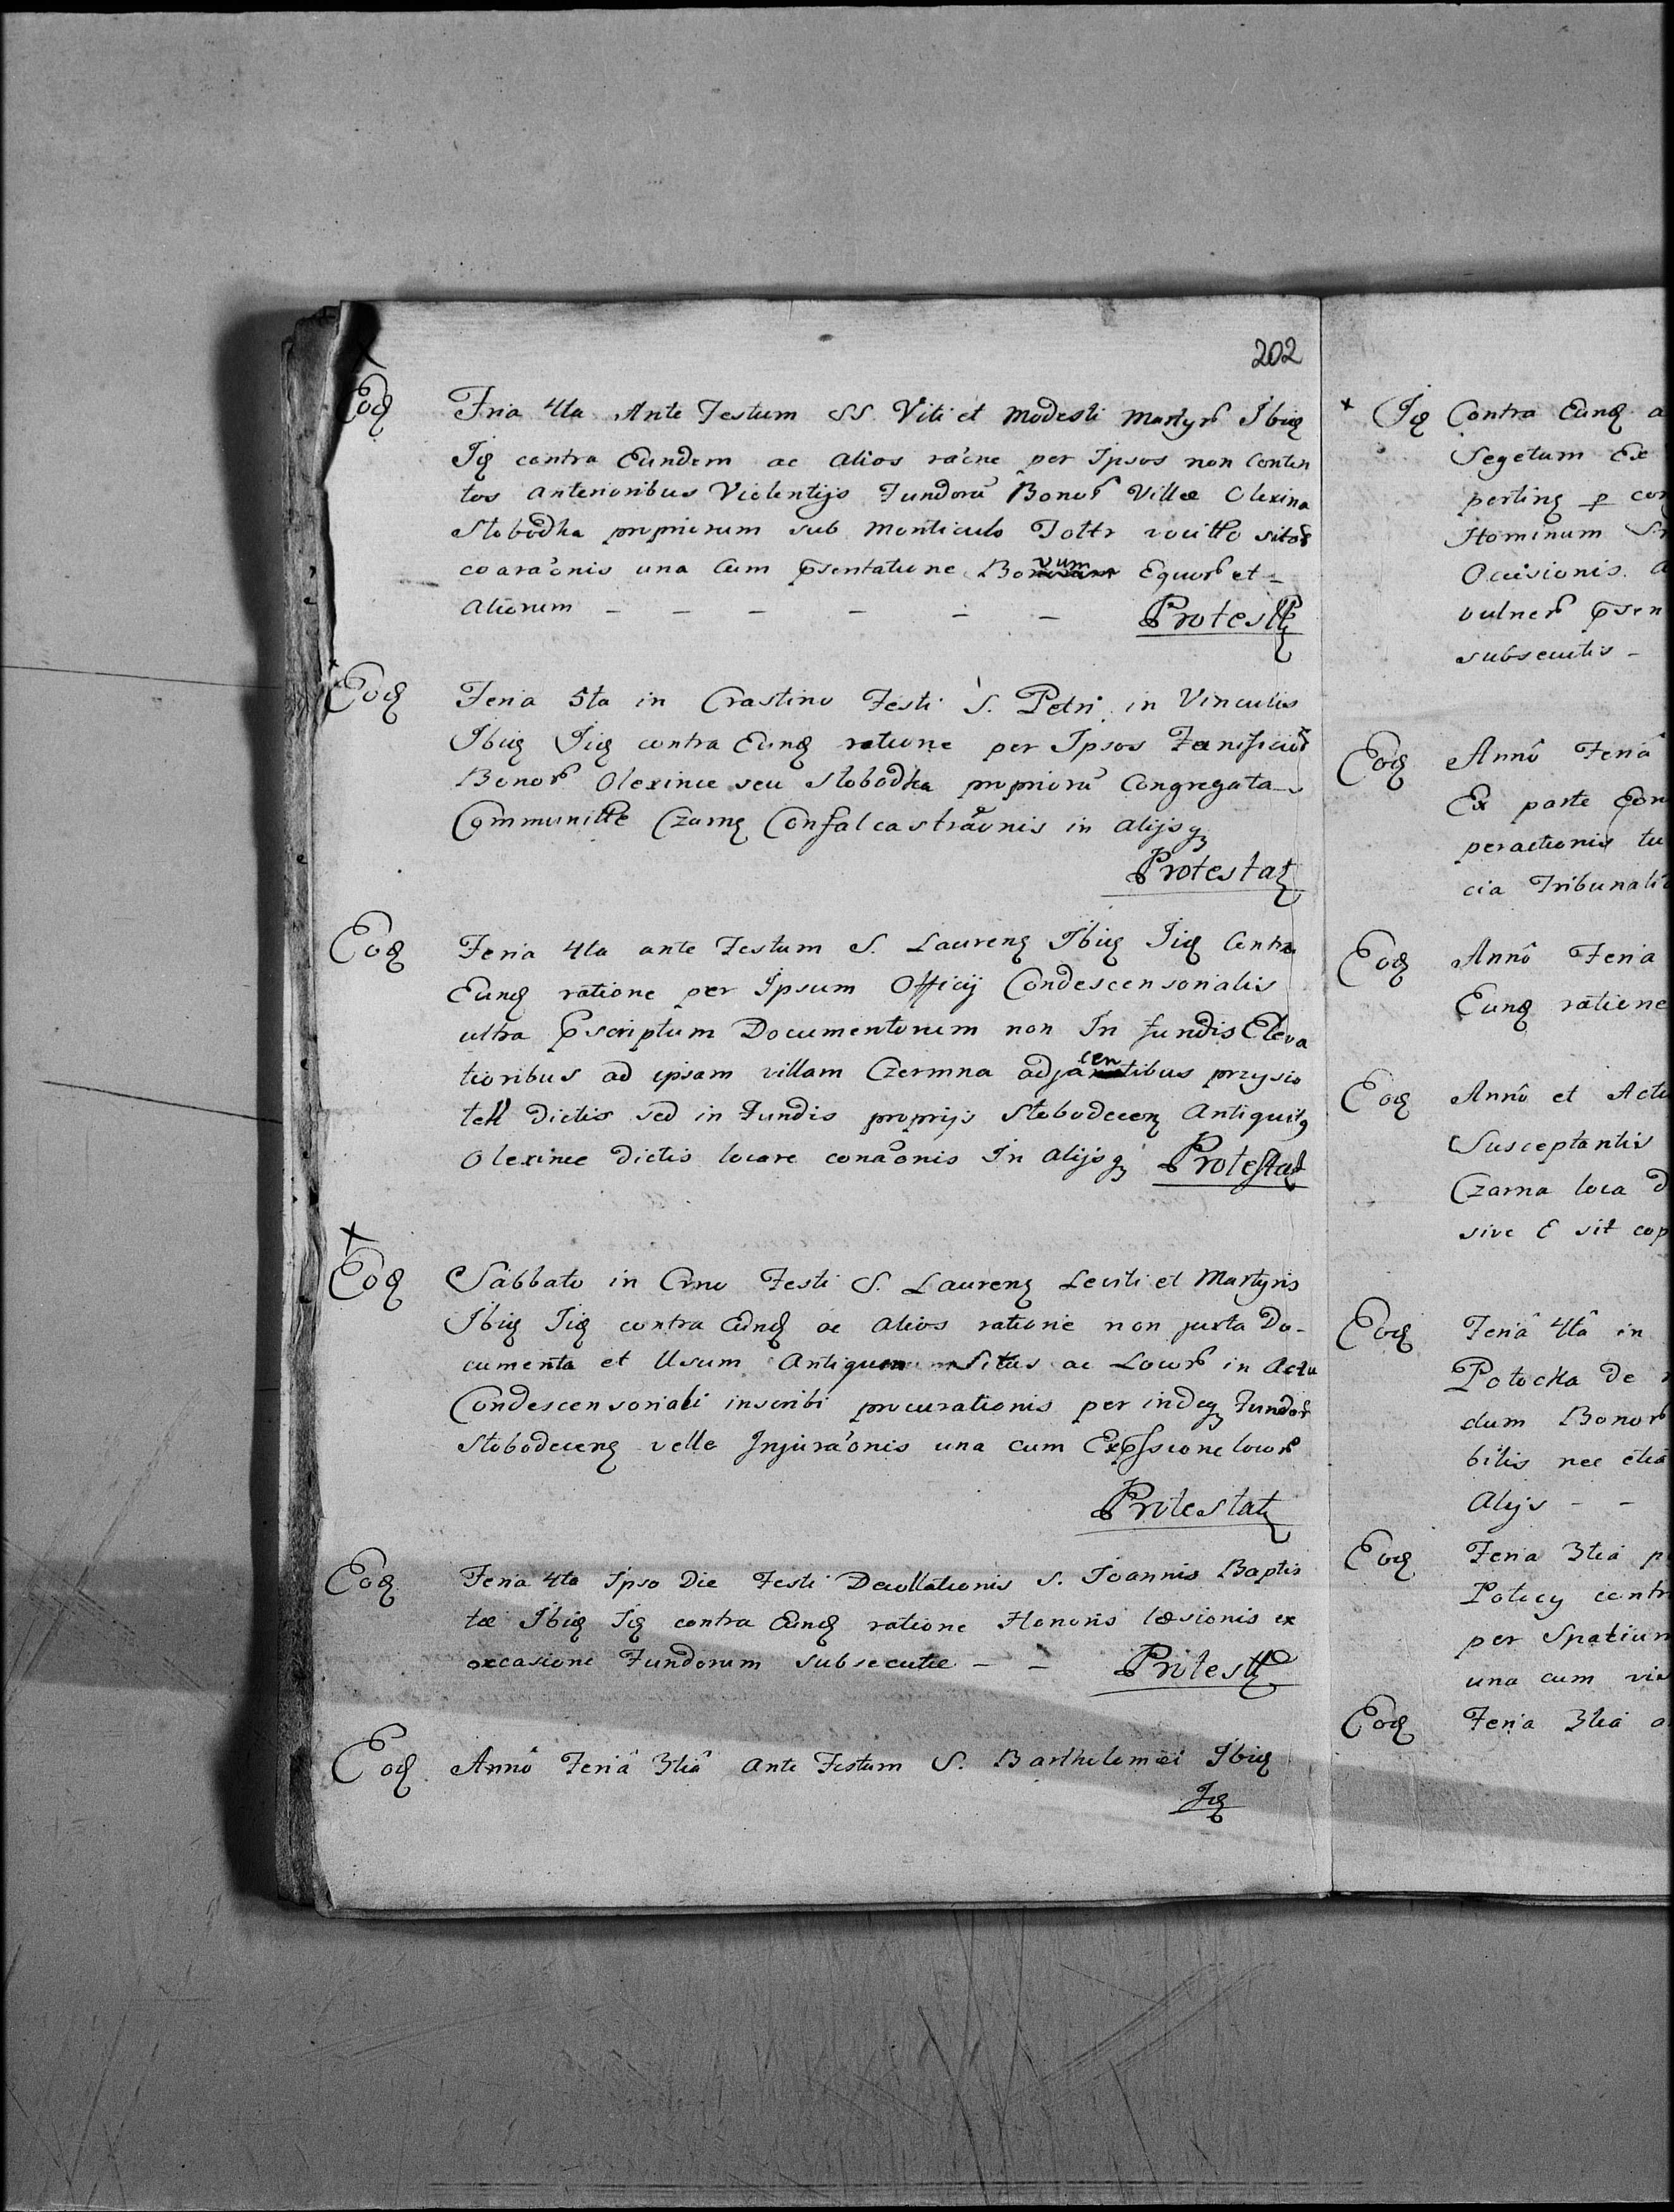 202
Eod Fria 4ta Ante Festum SS. Viti et Modesti Martyr Ibid
Id contra Eundem ac Alios raone per Ipsos non Conten
tos anterioribus Violentijs Fundorū Bonor Villæ Olexina
Słobodka propriorum sub Monticulo Toltr vocitto sitor
coaraōnis una Cum pſentatione Bovum Equor et -
Aliorum - - - - - - Protestt
Eod Feria 5ta in Crastino Festi S. Petri in Vinculis
Ibid Iid contra Eund ratione per Ipsos Fænificior
Bonor Olexince seu Słobodka propriorū Congregata
Communitte Czarnę Confalcastraōnis in alijsq
Protestat
Eod Feria 4ta ante Festum S. Laurent Ibid Iid Contra
Eund ratione per Ipsum Officij Condescensorialis
ultra pscriptum Documentorum non In fundis Eleva
tioribus ad ipsam villam Czermna adjacentibus przysio
tek Dictis sed in Fundis proprijs Słobodecen Antiquit9
Olexince Dictis locare conaōnis In Alijsq Protestat
x
Eod Sabbato in Crno Festi S. Laurent Leviti et Martyris
Ibid Iid contra Eund ac Alios ratione non juxta Do-
cumenta et Usum Antiquum Situs ac Locor in Actu
Condescensoriali inscribi procurationis per indeq Fundor
Słobodecens velle Injuraōnis una cum Expſsione locor
Protestat
Eod Feria 4ta Ipso Die Festi Decollationis S. Joannis Baptis
tæ Ibid Id contra Eund ratione Honoris læsionis ex
occasione Fundorum subsecutæ - - Protestt
Eod Annô Feriâ 3tiâ Ante Festum S. Barthelomæi Ibid
Id
x Id Contra Eund a
Segetum Ex
pertinen p con
Hominum
Occisionis
vulner pſen
subsecutis -
Eod Annô Feriâ
Ex parte Eor
peractionis tu
cia Tribunali
Eod Annô Feria
Eund ratione
Eod Annô et Actu
Susceptantis
Czarna loca d
sive E sit cop
Eod Feriâ 4tâ in
Potocka de
dum Bonor
bilis nec etia
Alijs - -
Eod Feria 3tia p
Potocy contr
per Spatium
una cum vis
Eod Feria 3tia a